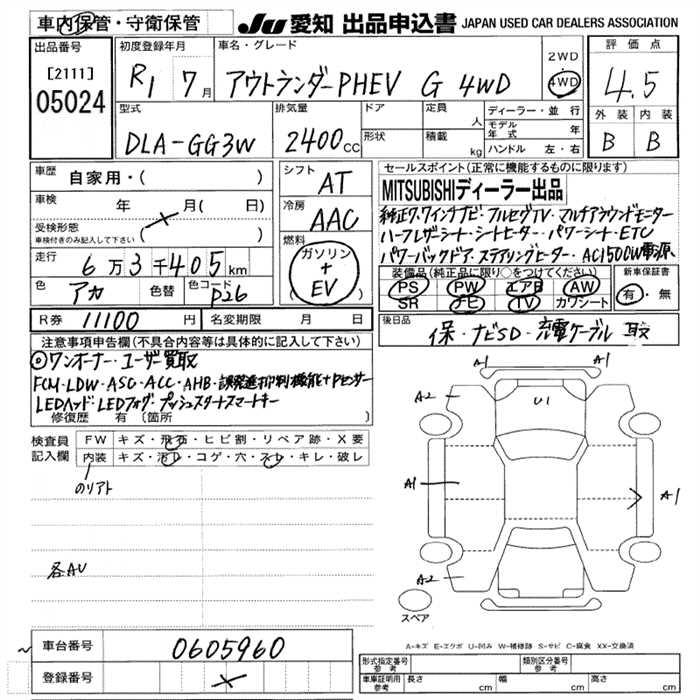 車内保管・守衛保管
JU 愛知 出品申込書 JAPAN USED CAR DEALERS ASSOCIATION
出品番号
[2111]
05024
初度登録年月
R1 7月
車名・グレード
アウトランダーPHEV G 4WD
2WD
4WD
評価点
4.5
外装 内装
B B
型式
DLA-GG3W
排気量
2400cc
ドア
形状
定員
人
積載
kg
ディーラー・並行
モデル年式 年
ハンドル 左・右
車歴
自家用・( )
車検
年 月( 日)
受検形態
車検付きのみ記入して下さい
( )
走行
6万3千405km
色
アカ
色替
色コード
P26
シフト
AT
冷房
AAC
燃料
ガソリン
+
EV
セールスポイント(正常に機能するものに限ります)
MITSUBISHIディーラー出品
純正クワインチナビ・フルセグTV・マルチアラウンドモニター
ハーフレザーシート・シートヒーター・パワーシート・ETC
パワーバックドア・ステアリングヒーター・AC1500W電源
装備品(純正品に限り○をつけてください)
PS PW エアB AW
SR ナビ TV カワシート
新車保証書
有・無
R券 11100円
名変期限 月 日
後日品
保・ナビSD・充電ケーブル 取
注意事項申告欄(不具合内容等は具体的に記入して下さい)
◎ワンオーナー・ユーザー買取
FCM・LDW・ASC・ACC・AHB・誤発進抑制機能+Pセンサー
LEDヘッド・LEDフォグ・プッシュスタートスマートキー
修復歴 有 〔箇所 〕
検査員
記入欄
FW キズ・飛石・ヒビ割・リペア跡・X要
内装 キズ・汚D・コゲ・穴・スレ・キレ・破レ
のリアト
各AU
A1
A1
A2
U1
A1
A1
A2
スペア
A-キズ E-エクボ U-凹み W-補修跡 S-サビ C-腐食 XX-交換済
車台番号
0605960
登録番号
形式指定番号
参考
類別区分番号
参考
車庫証明
参考
長さ cm
幅 cm
高さ cm